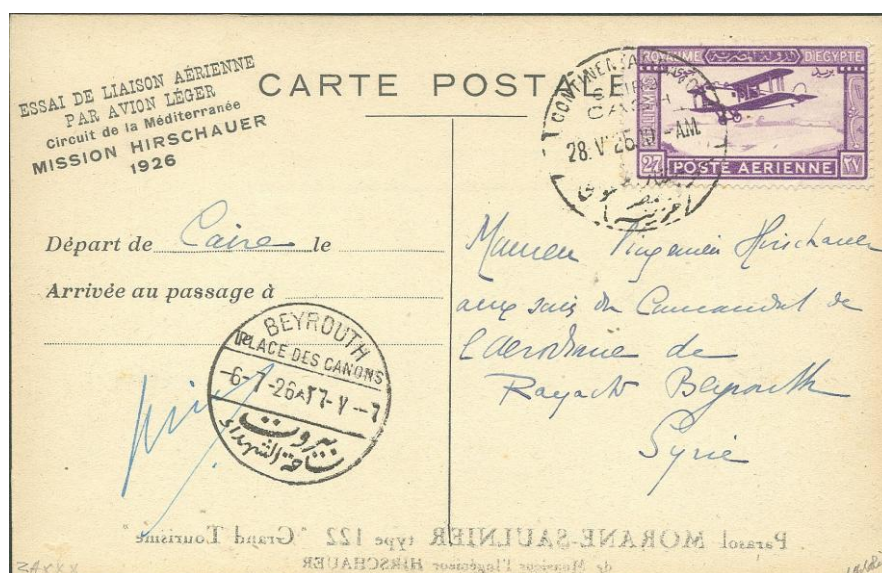 ESSAI DE LIAISON AÉRIENNE
PAR AVION LÉGER
Circuit de la Méditerranée
MISSION HIRSCHAUER
1926
CARTE POSTALE
CONTINENTAL
CAIRO
28. V 26. 10 - AM
ROYAUME D'EGYPTE
27 POSTE AERIENNE ٢٧
Départ de Caire le
Arrivée au passage à
BEYROUTH
PLACE DES CANONS
-6-7-26 ٢٦-٧-٦
بيروت
ساحة الشهداء
Monsieur l'ingénieur Hirschauer
aux soins du Commandant de
l'Aérodrome de
Rayack Beyrouth
Syrie
Parasol MORANE-SAULNIER type 122 "Grand Tourisme"
de Monsieur l'Ingénieur HIRSCHAUER